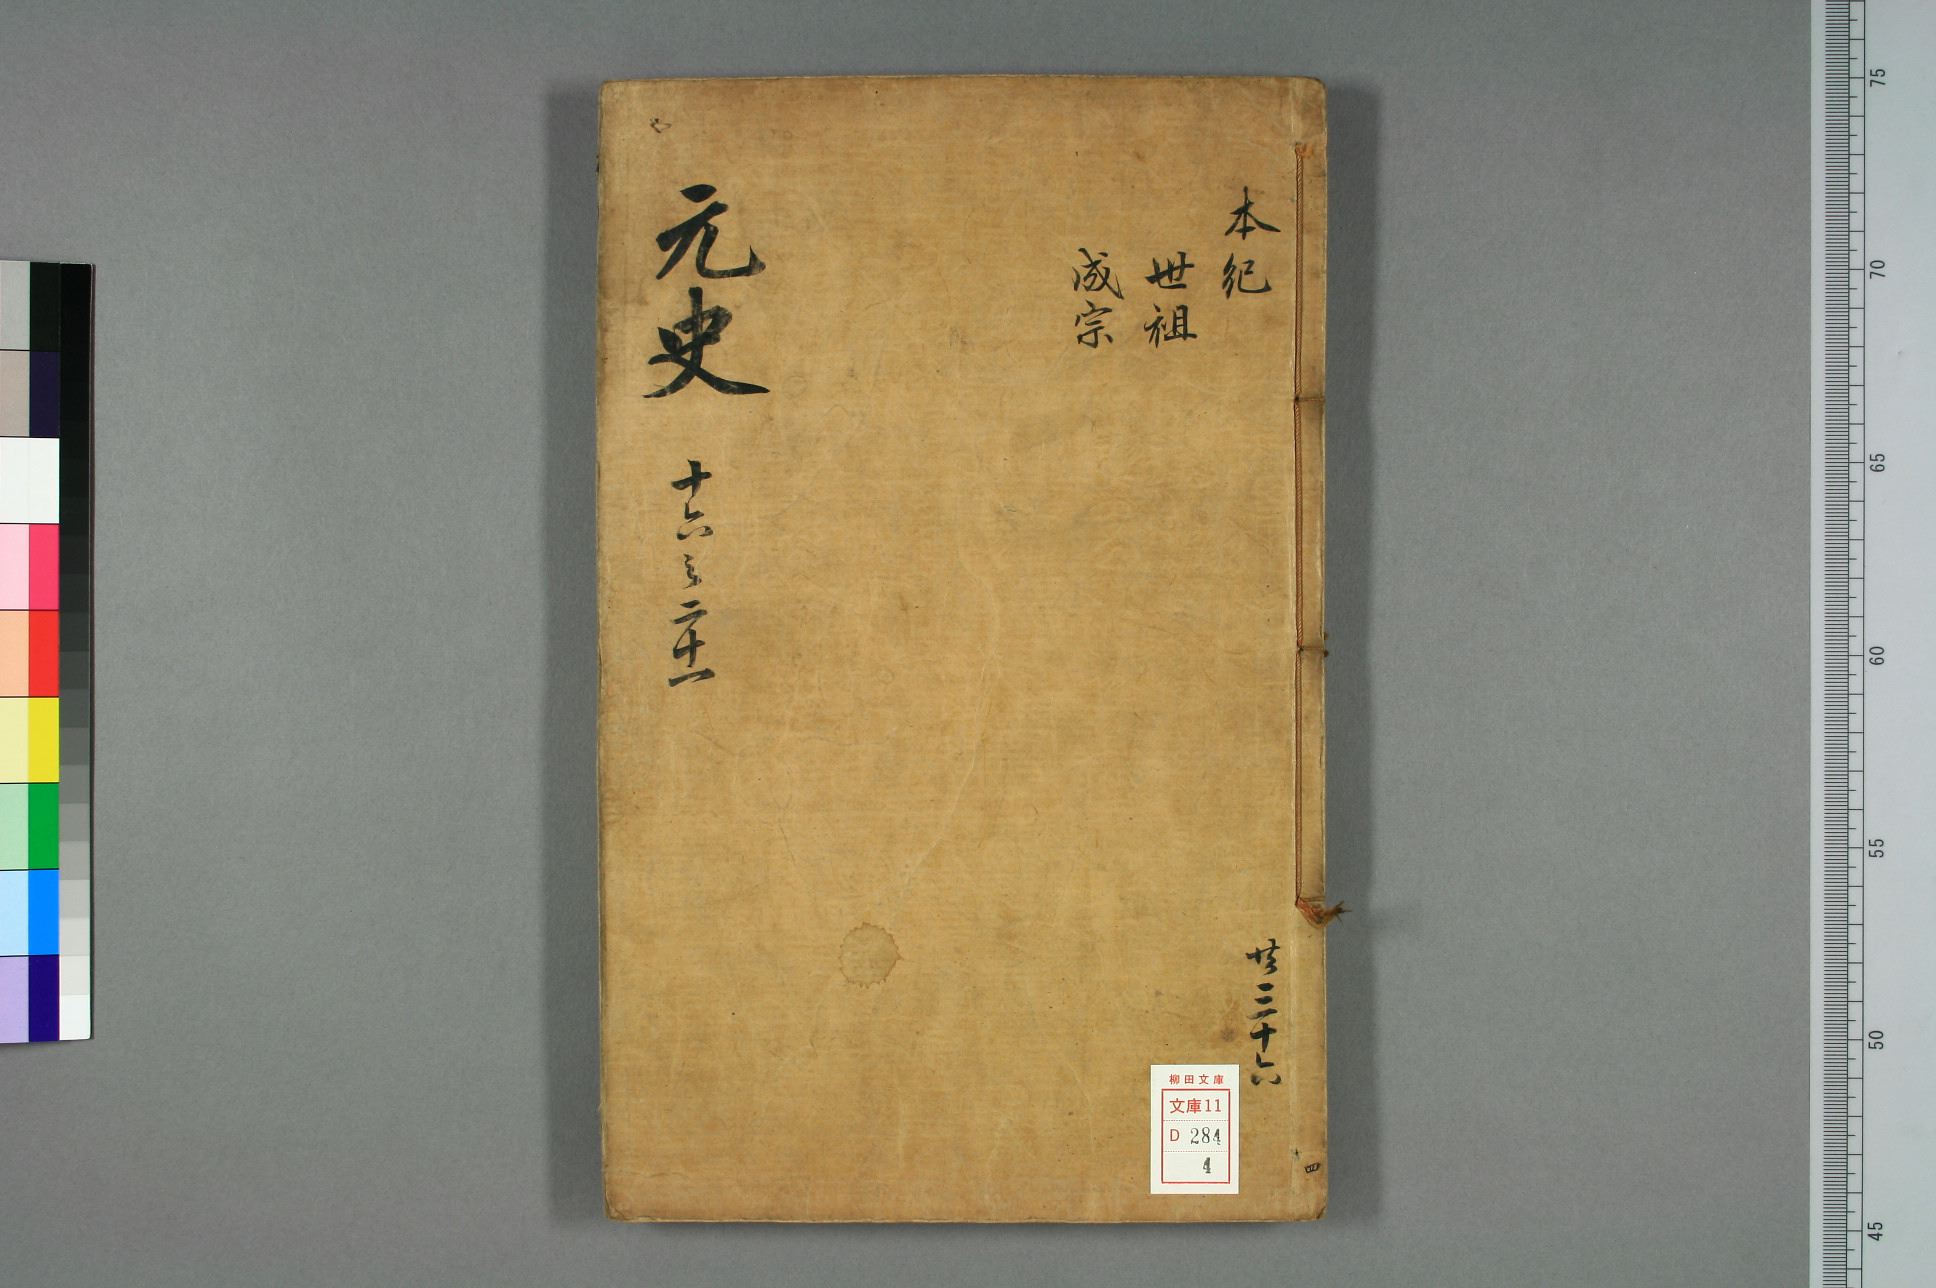 本紀
世祖
成宗
元史 十六之二十一
共三十六
四
柳田文庫
文庫11
D 284
4
75
70
65
60
55
50
45